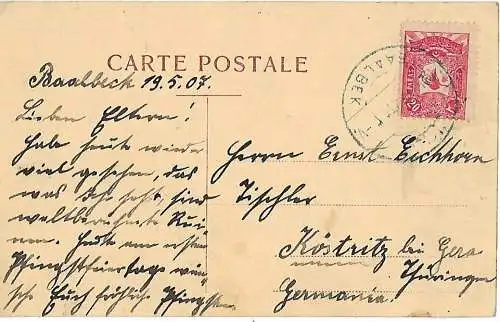 CARTE POSTALE
Baalbeck 19.5.07.
Lieben Eltern!
Habe heute wieder
viel gesehen, das
was da seht, sind
weltberühmte Rui-
nen. Heute am ersten
Pfingstfeiertage wün-
sche Euch fröhliche Pfingsten
Herrn Ernst Eichhorn
Tischler
Köstritz bei Gera
Thüringen
Germania.
BAALBEK
20